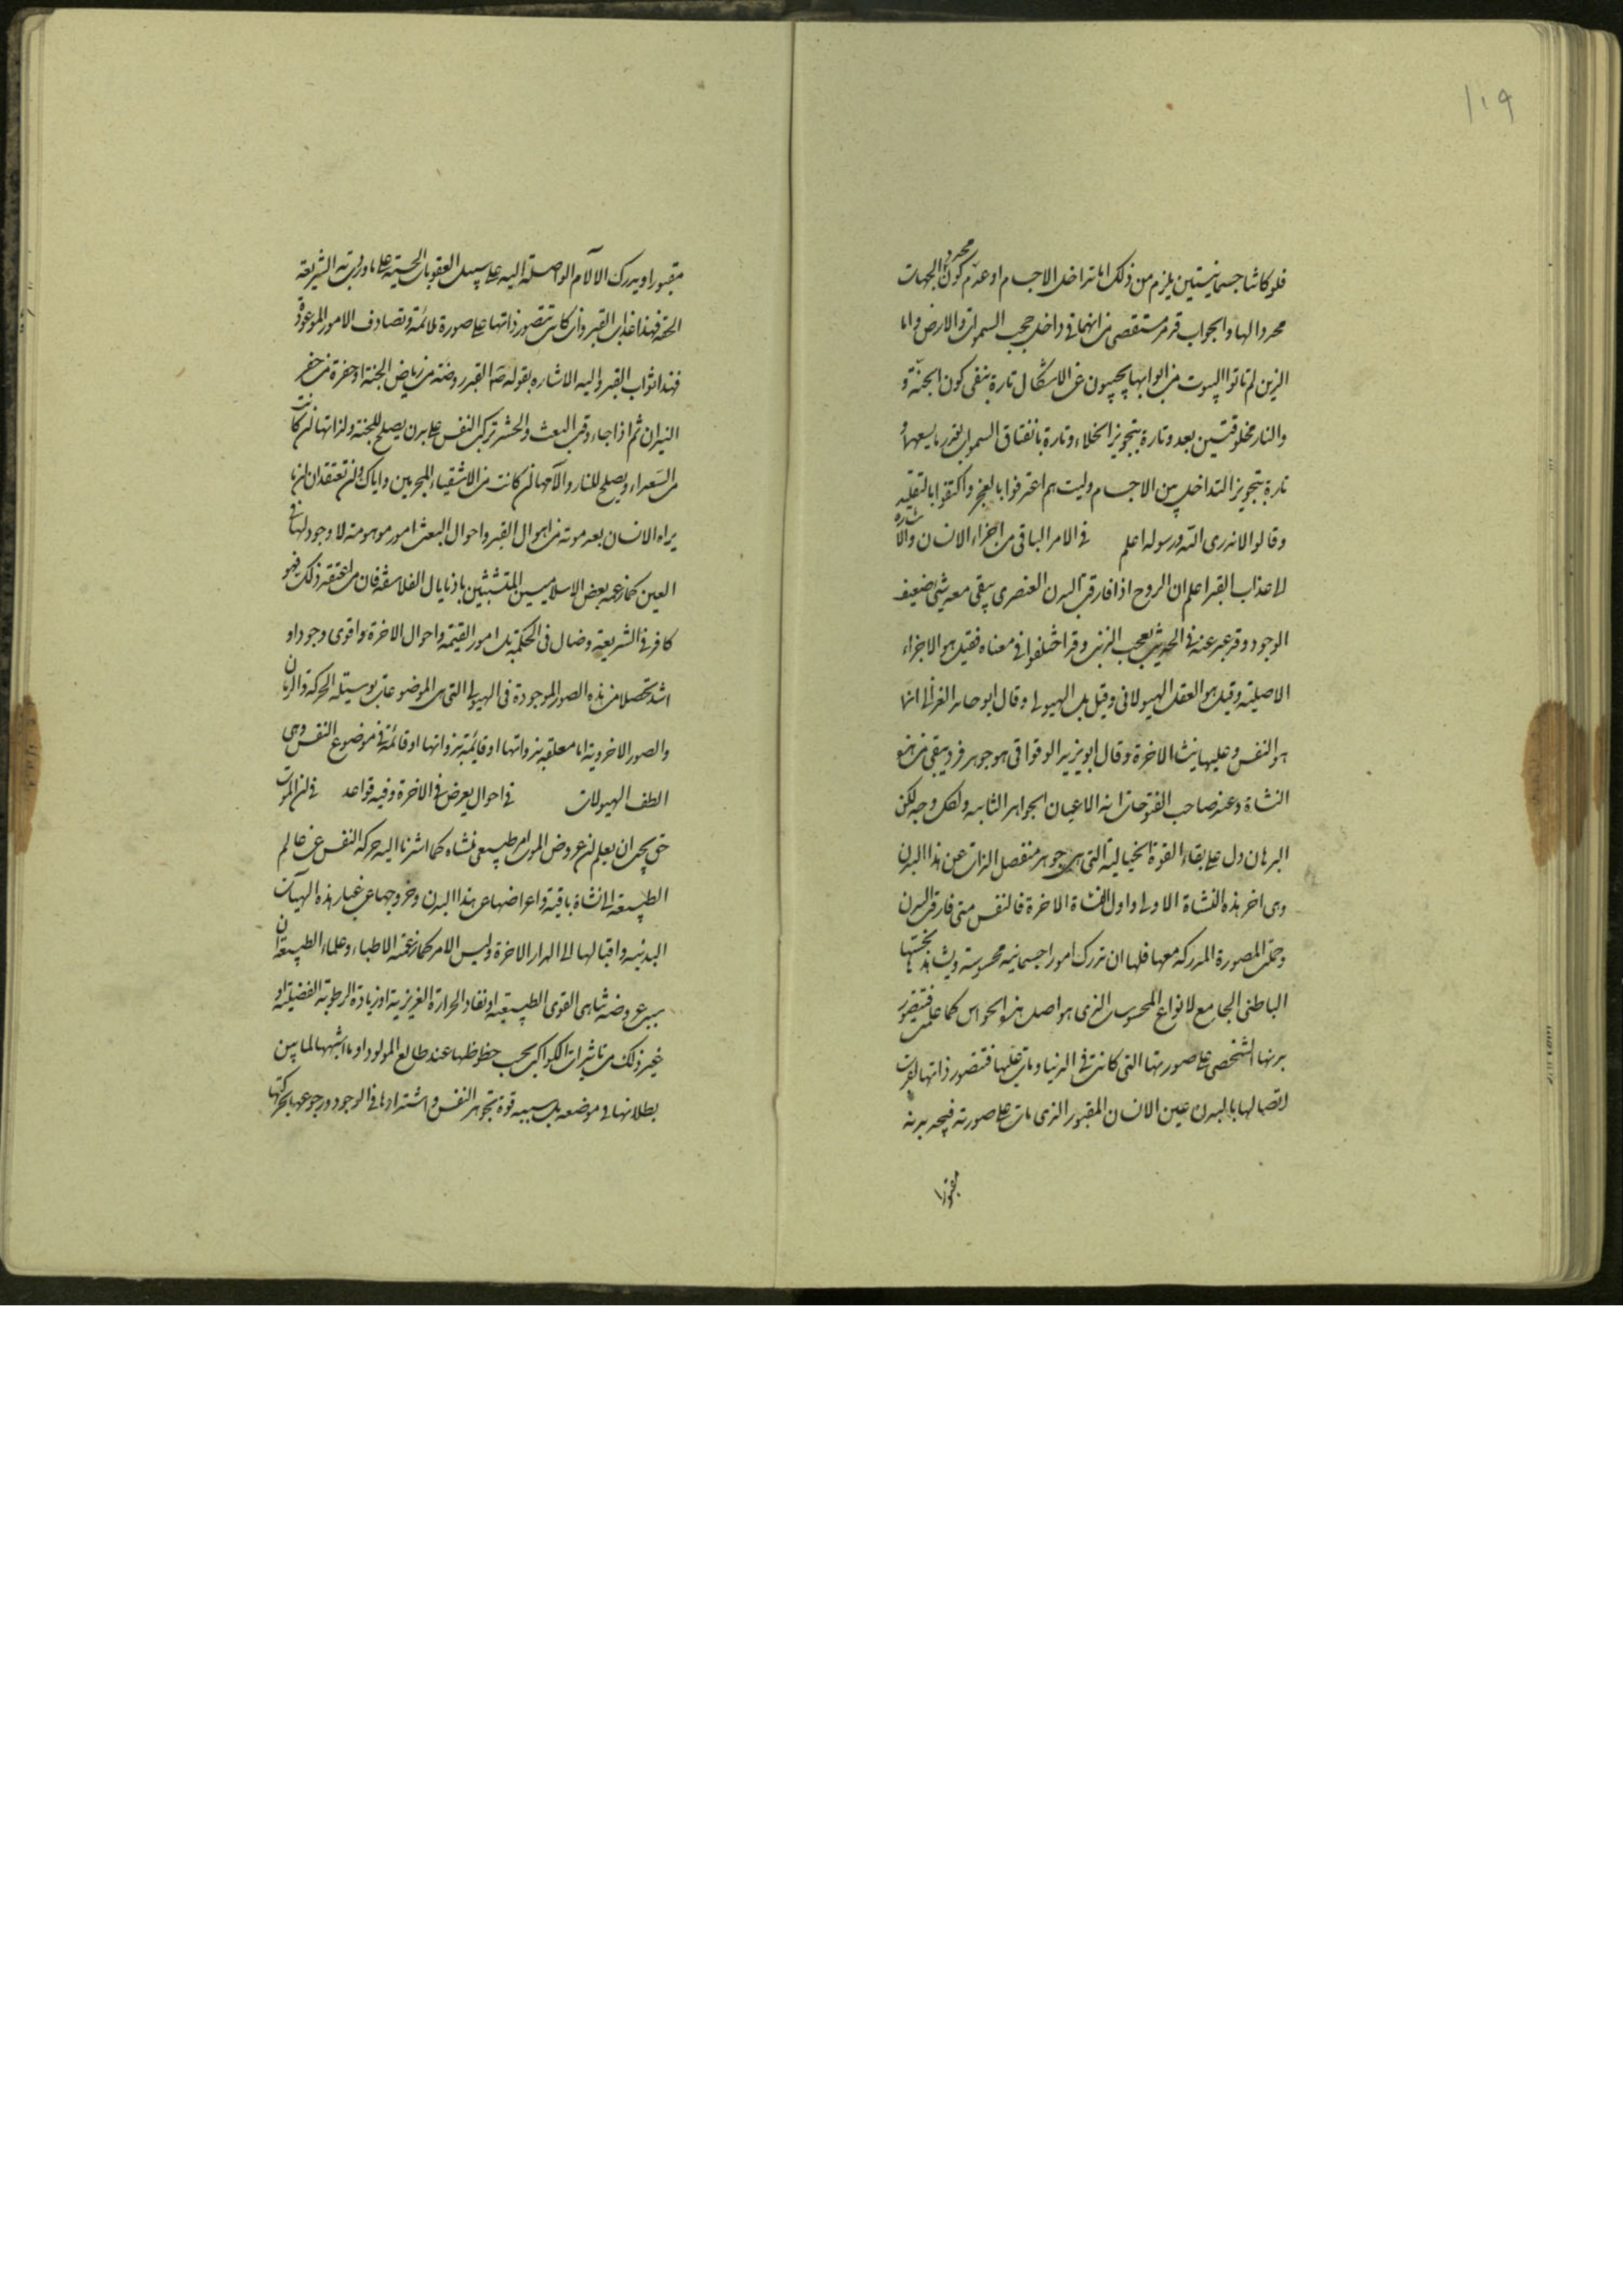 ١١٩
فلو كانتا جسمانيتين يلزم من ذلك اما تداخل الاجسام او عدم كون محدد الجهات
محددا لها والجواب قد مر مستقصى من انهما فى داخل حجب السموات والارض واما
الذين لم ياتوا البيوت من ابوابها يجيبون عن الاشكال تارة بنفى كون الجنة و
والنار مخلوقتين بعد وتارة بتجويز الخلاء وتارة بانفتاق السموات بقدر ما يسعهما و
تارة بتجويز التداخل بين الاجسام وليت هم اعترفوا بالعجز واكتفوا بالتقليد
وقالوا لا ندرى الله ورسوله اعلم فى الامر الباقى من اجزاء الانسان والاشاره
الى عذاب القبر اعلم ان الروح اذا فارقت البدن العنصرى يبقى معه شئ ضعيف
الوجود وقد عبر عنه فى الحديث بعجب الذنب وقد اختلفوا فى معناه فقيل هو الاجزاء
الاصلية وقيل هو العقل الهيولانى وقيل بل الهيولى وقال ابو حامد الغزالى انما
هو النفس وعليها ينشا الاخرة وقال ابو يزيد الوقواقى هو جوهر فرد يبقى من هذه
النشاة وعند صاحب الفتوحات انه الاعيان الجواهر الثابته ولكل وجه لكن
البرهان دل على بقاء القوة الخيالية التى هى جوهر منفصل الذات عن هذا البدن
وهى اخر هذه النشاة الاولى واول النشاة الاخرة فالنفس متى فارقت البدن
وحملت المصورة المدركه معها فلها ان تدرك امورا جسمانيه محسوسة ويشاهدها بحسها
الباطنى الجامع لانواع المحسوسات الذى هو اصل هذه الحواس كما علمت فيتصور
بدنها الشخصى على صورتها التى كانت فى الدنيا ومات عليها فتتصور ذاتها لقرب
اتصالها بالبدن عين الانسان المقبور الذى مات على صورته فيجد بدنه
مقبورا
مقبورا ويدرك الالآم الواصلة اليه على سبيل العقوبات الحسية على ما وردت به الشريعة
الحقة فهذا عذاب القبر وان كانت تتصور ذاتها على صورة ملائمة وتصادف الامور الموعودة
فهذا ثواب القبر واليه الاشاره بقوله صم القبر روضة من رياض الجنة او حفرة من حفر
النيران ثم اذا جاء وقت البعث والحشر تركب النفس على بدن يصلح للجنة ولذاتها ان كانت
من السعداء ويصلح للنار والآمها ان كانت من الاشقياء المجرمين واياك وان تعتقد ان ما
يراه الانسان بعد موته من اهوال القبر واحوال البعث امور موهومة لا وجود لها فى
العين كما زعمه بعض الاسلاميين المتشبثين باذيال الفلاسفة فان من اعتقد ذلك فهو
كافر فى الشريعة وضال فى الحكمة بل امور القيمة واحوال الاخرة اقوى وجودا و
اشد تحصلا من هذه الصور الموجودة فى الهيولى التى هى الموضوعات بوسيلة الحركة والزمان
والصور الاخروية اما معلقه بذواتها او قائمة بذواتها او قائمة فى موضوع النفس وهى
الطف الهيولات فى احوال يعرض فى الاخرة وفيه قواعد فى ان الموت
حق يجب ان يعلم ان عروض الموت امر طبيعى منشاه كما اشرنا اليه حركة النفس عن عالم
الطبيعة الى نشاة باقية واعراضها عن هذا البدن وخروجها عن غبار هذه الهيآت
البدنية واقبالها الى الدار الاخرة وليس الامر كما زعمة الاطباء وعلماء الطبيعة ان
سبب عروضه تناهى القوى الطبيعية او نفاد الحرارة الغريزية او زيادة الرطوبة الفضيلة او
غير ذلك من تاثيرات الكواكب بحسب حظوظها عند طالع المولود او ما اشبهها لما بين
بطلانها فى موضعه بل سببه قوة تجوهر النفس واشتدادها فى الوجود ورجوعها بحركتها